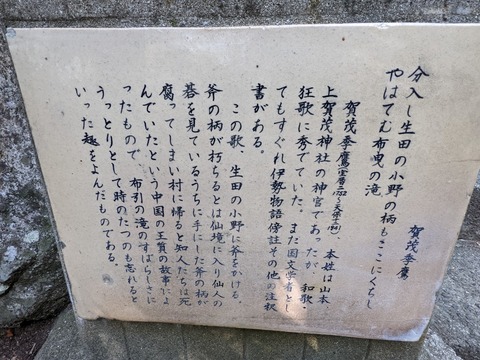 分入し生田の小野の柄もここにくちし
やはてむ布曳の滝
賀茂季鷹
賀茂季鷹
上賀茂神社の神官であったが、和歌、
狂歌に秀でていた。また国文学者とし
てもすぐれ伊勢物語傍註その他の注釈
書がある。
この歌、生田の小野に斧をかける。
斧の柄が朽ちるとは仙境に入り仙人の
碁を見ているうちに手にした斧の柄が
腐ってしまい村に帰ると知人たちは死
んでいたという中国の王質の故事によ
ったもので、布引の滝のすばらしさに
うっとりとして時のたつのも忘れると
いった趣をよんだものである。